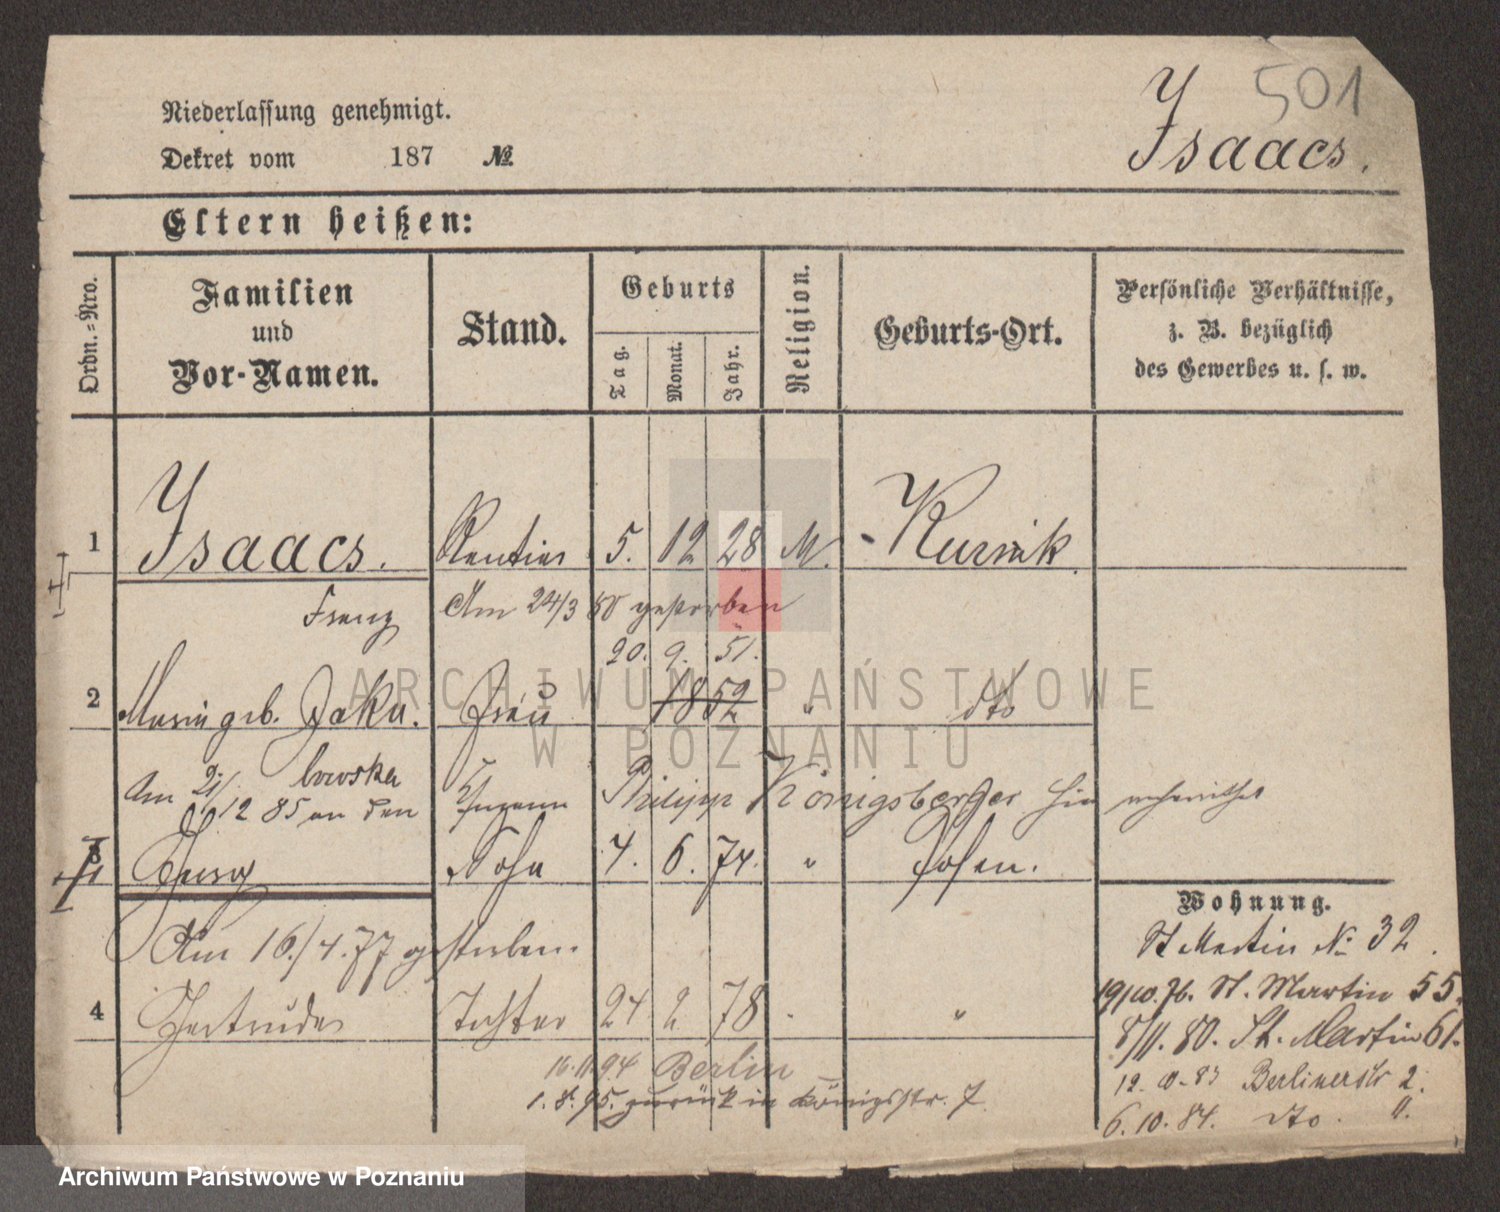 501
Niederlassung genehmigt.
Isaacs.
Dekret vom 187 №
Eltern heißen:
Ordn.-Nro.
Familien und Vor-Namen.
Stand.
Geburts
Tag.
Monat.
Jahr.
Religion.
Geburts-Ort.
Persönliche Verhältnisse,
z. B. bezüglich
des Gewerbes u. s. w.
1 Isaacs. Rentier 5. 12 28 M. Kurnik
Franz Am 24/3 80 gestorben
20. 9. 51.
2 Marie geb. Zaka. Frau 1852 " dto
lowska
Am 21/12 85 an den Philipp Königsberger hier verheirathet
3 Georg Sohn 4. 6. 74. " Posen.
Wohnung.
Am 16./4. 77 gestorben.
St Martin № 32.
19/10. 76. St. Martin 55.
4 Gertrude Tochter 24 2 78 "
8/11. 80. St. Martin 61.
16.11.94 Berlin
12. 10. 83 Berlinerstr 2.
1. 8. 95. zurück in Königsstr. 7
6. 10. 84. dto. 11.
ARCHIWUM PAŃSTWOWE
W POZNANIU
Archiwum Państwowe w Poznaniu